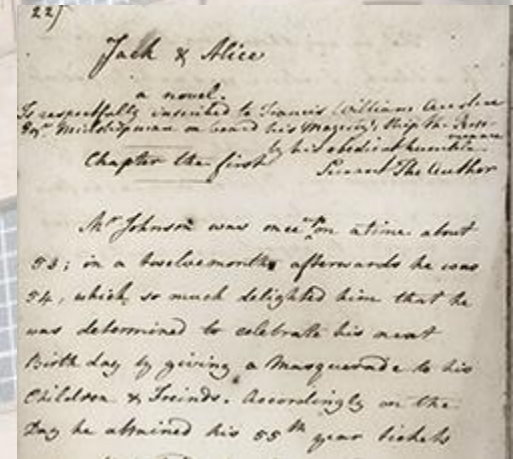 22)
Jack & Alice
a novel.
Is respectfully inscribed to Francis William Austen
Esqr Midshipman on board his Majesty's Ship the Perse-
verance
by his obedient humble
Chapter the first Servant The Author
Mr Johnson was once upon a time about
53; in a twelvemonth afterwards he was
54, which so much delighted him that he
was determined to celebrate his next
Birth day by giving a Masquerade to his
Children & Freinds. Accordingly on the
Day he attained his 55th year tickets